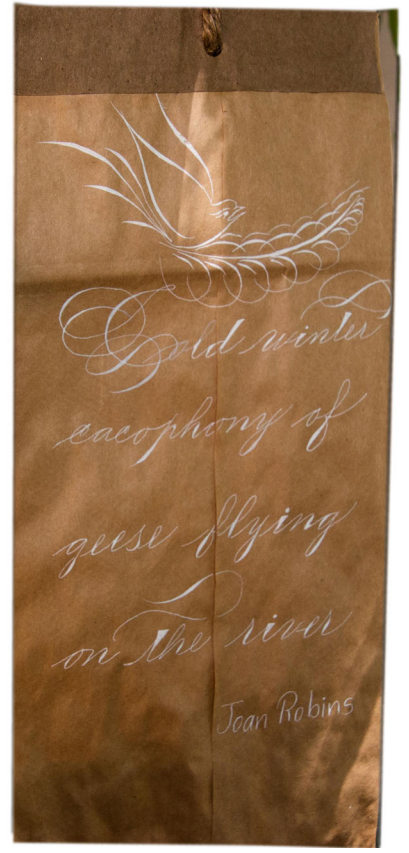 Cold winter
cacophony of
geese flying
on the river
Joan Robins